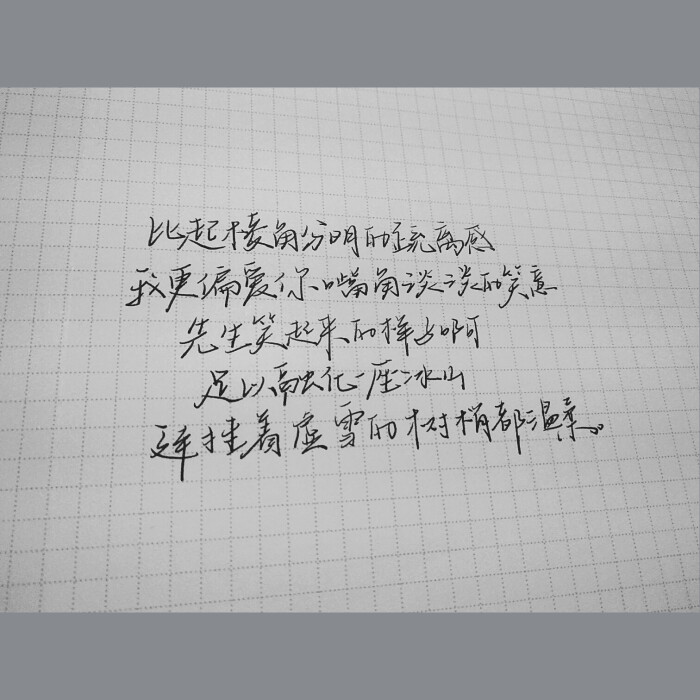 比起棱角分明的疏离感
我更偏爱你嘴角谈谈的笑意
先生笑起来的样子啊
足以融化一座冰山
连挂着虚雪的树梢都温柔。